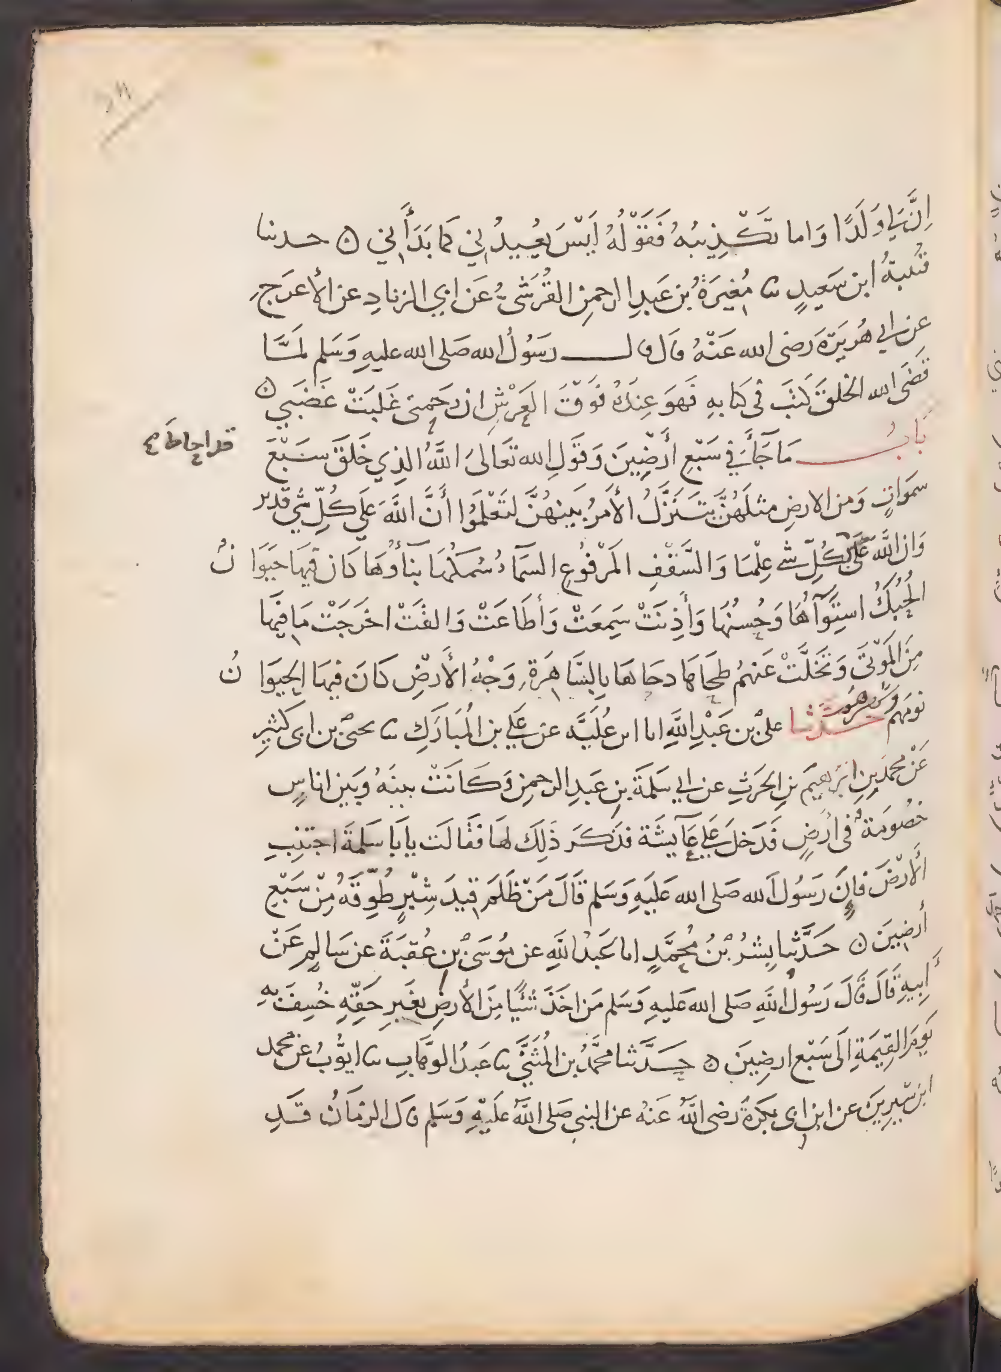 اِنَّ لِي وَلَدًا وَاما تَكْذِيبُهُ فَقَوْلُهُ لَيْسَ يُعِيدُنِي كَما بَدَأَنِي ۞ حدثنا
قُتَيبةُ ابن سَعِيدٍ نا مُغِيرَةُ بْنُ عَبدِ الرحمنِ القُرَشيُّ عَن ابي الزنادِ عن الأعرَجِ
عن ابي هُرَيرَةَ رضى الله عَنْهُ قال قال رسَوُلُ الله صَلى الله عليهِ وَسَلم لَمَّا
قَضَى الله الخلقَ كتَبَ في كتابهِ فَهوَ عِندَهُ فَوْقَ العَرْشِ ان رَحمتى غَلَبَتْ غَضَبي ۞
بَابُ مَا جَآءَ في سَبْعِ أَرضِينَ وَقولِ الله تعَالَى اللَّهُ الذِي خَلَقَ سَبْعَ
قد احاط
سَموَاتٍ وَمن الارضِ مثلَهُنَّ يَتَنَزَّلُ الأَمرُ بَينهُنَّ لتَعْلَموُا أَنَّ اللَّهَ عَلَى كُلِّ شَيْ قدير
وَان اللَّهَ بكُلِّ شي عِلْما وَالسَّقْفِ المَرْفوُعِ السَّمَاءُ سَمكَهَا بنَاؤُهَا كان فِيهَا حَيَوَان
الحُبُكُ استِوَآؤُهَا وَحُسنُهَا وَأَذِنَتْ سَمِعَتْ وَأَطَاعَتْ وَالقَتْ اخرَجَتْ مَا فيهَا
مِنَ المَوْتَى وَتَخَلَّتْ عَنهُم طَحَاهَا دحَاهَا بِالسَّاهِرَةِ وَجْهُ الأَرْضِ كَانَ فيهَا الحيَوَان
نومهم وسهرهم حَدَّثنا علىُّ بن عَبْدِ اللَّهِ انا ابن عُلَيَّه عن عَلي بن المُبَارَكِ نا يحيىَ بن ابى كثيرٍ
عَنْ محمد بن ابرَهيمَ بنِ الحَرثِ عن ابي سَلمَةَ بنِ عَبدِ الرحمنِ وَكَانَتْ بينَهُ وَبَين اناسٍ
خصُومَةٌ فى ارضٍ فَدَخلَ عَلي عَآيِشَة فذكَرَ ذلِكَ لهَا فَقَالَت يا بَا سَلَمةَ اجتَنِبِ
الأَرْضَ فاِنَ رَسَوُلَ الله صَلى الله عَليَهِ وَسَلم قَالَ مَنْ ظَلَمَ قِيدَ شِبْرٍ طُوِّقَهُ مِنْ سَبْعِ
أرضِينَ ۞ حَدَّثنا بِشْرُ بْنُ مُحمَّدٍ انا عَبدُ اللَّهِ عن مُوسَىَ بْنِ عُقبَةَ عن سَالِمٍ عَنْ
أَبيهِ قَالَ قَالَ رَسوُلُ اللَّهِ صَلى الله عليَهِ وَسَلم مَن اخَذَ شَيْئًا مِنَ الأَرضِ بغَيرِ حَقِّهِ خُسِفَ بِهِ
يَومَ القِيمَةِ اِلَى سَبْع ارضِينَ ۞ حَدَّثنا محمَّدُ بن المُثنَّىَ نا عَبدُ الوَهَّابِ نا ايّوُبُ عن محمد
ابن سِيرِينَ عن ابن ابى بكرَةَ رَضى اللَّهُ عَنهُ عن النبي صَلى اللَّهُ علَيْهِ وَسَلم قال الزمَانُ قَدِ